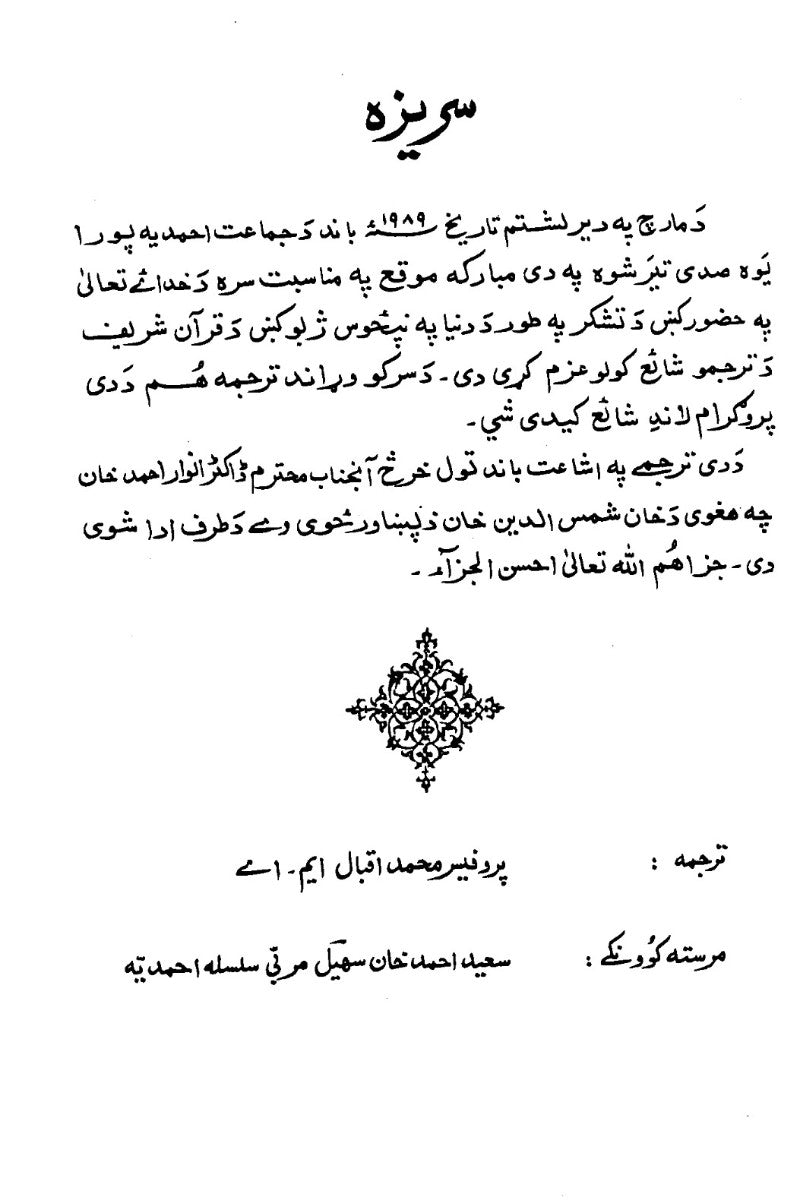 سریزه
دَ مارچ په دیرلشتم تاریخ ۱۹۸۹ سنهٔ باند دَ جماعت احمدیه پورا
یَوه صدی تیَر شوه په دی مبارکه موقع په مناسبت سره دَ خدائے تعالیٰ
په حضور کښ دَ تشکر په طور دَ دنیا په نپځوس ژبو کښ دَ قرآن شریف
دَ ترجمو شائع کولو عزم کړی دی۔ دَ سرکو وړاند ترجمه هُم دَ دی
پروگرام لاندِ شائع کیدی شي۔
دَ دی ترجمے په اشاعت باند تول خرڅ آنجناب محترم ډاکټر انوار احمد خان
چه هغوی دَ خان شمس الدین خان دَ پېښاور ځوی وے دَ طرف ادا شوی
دی۔ جزاهُم الله تعالیٰ احسن الجزآء۔
ترجمه : پروفیسر محمد اقبال ایم۔اے
مرسته کوُونکے : سعید احمد خان سهیل مربّی سلسله احمدیّه